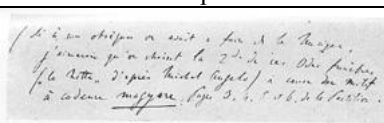 (Si à mes obsèques on avait à faire de la Musique,
j'aimerais qu'on choisit la 2de de ces Odes funèbres,
(la Notte, d'après Michel Angelo) à cause du motif
à cadence magyare, Pages 3, 4, 5 et 6, de la Partition.